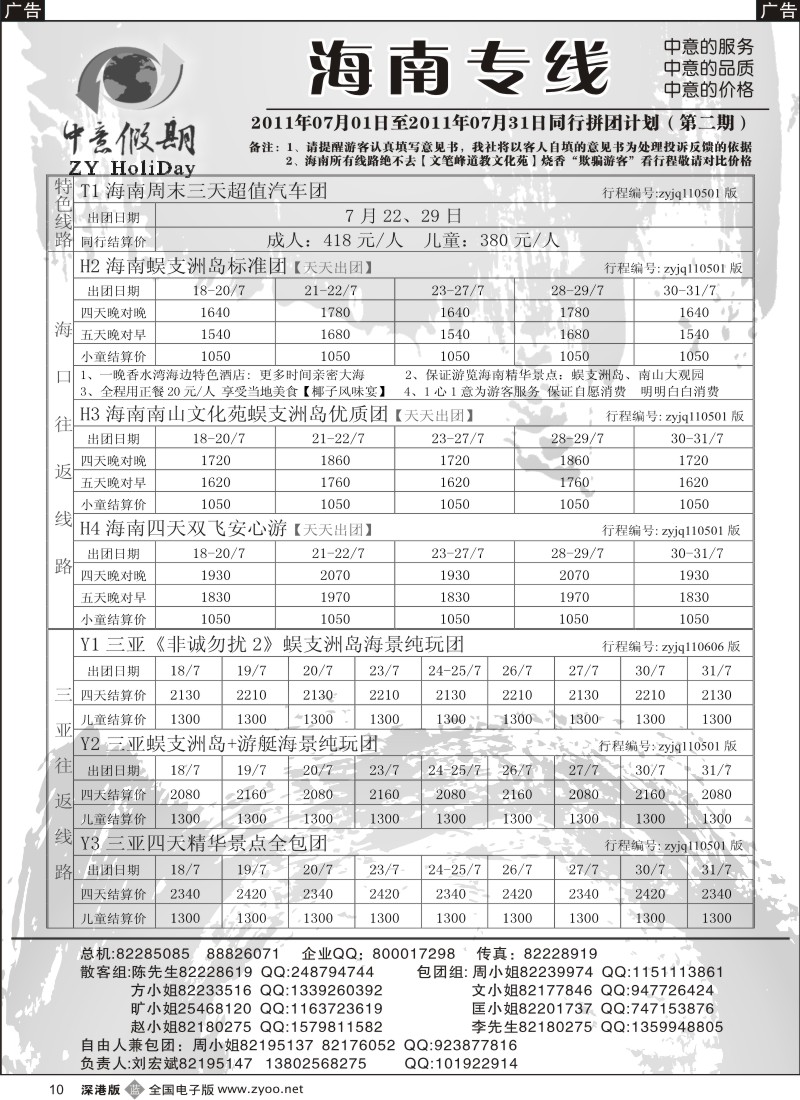 广告 广告
海南专线
中意的服务
中意的品质
中意的价格
中意假期
ZY HoliDay
2011年07月01日至2011年07月31日同行拼团计划（第二期）
备注：1、请提醒游客认真填写意见书，我社将以客人自填的意见书为处理投诉反馈的依据
2、海南所有线路绝不去【文笔峰道教文化苑】烧香“欺骗游客”看行程敬请对比价格
特色线路
T1 海南周末三天超值汽车团 行程编号:zyjq110501 版
出团日期 7 月 22、29 日
同行结算价 成人：418 元/人 儿童：380 元/人
海口往返线路
H2 海南蜈支洲岛标准团【天天出团】 行程编号: zyjq110501 版
出团日期 18-20/7 21-22/7 23-27/7 28-29/7 30-31/7
四天晚对晚 1640 1780 1640 1780 1640
五天晚对早 1540 1680 1540 1680 1540
小童结算价 1050 1050 1050 1050 1050
1、一晚香水湾海边特色酒店：更多时间亲密大海 2、保证游览海南精华景点：蜈支洲岛、南山大观园
3、全程用正餐 20 元/人 享受当地美食【椰子风味宴】 4、1 心 1 意为游客服务 保证自愿消费 明明白白消费
H3 海南南山文化苑蜈支洲岛优质团【天天出团】 行程编号: zyjq110501 版
出团日期 18-20/7 21-22/7 23-27/7 28-29/7 30-31/7
四天晚对晚 1720 1860 1720 1860 1720
五天晚对早 1620 1760 1620 1760 1620
小童结算价 1050 1050 1050 1050 1050
H4 海南四天双飞安心游【天天出团】 行程编号: zyjq110501 版
出团日期 18-20/7 21-22/7 23-27/7 28-29/7 30-31/7
四天晚对晚 1930 2070 1930 2070 1930
五天晚对早 1830 1970 1830 1970 1830
小童结算价 1050 1050 1050 1050 1050
三亚往返线路
Y1 三亚《非诚勿扰 2》蜈支洲岛海景纯玩团 行程编号: zyjq110606 版
出团日期 18/7 19/7 20/7 23/7 24-25/7 26/7 27/7 30/7 31/7
四天结算价 2130 2210 2130 2210 2130 2210 2130 2210 2130
儿童结算价 1300 1300 1300 1300 1300 1300 1300 1300 1300
Y2 三亚蜈支洲岛+游艇海景纯玩团 行程编号: zyjq110501 版
出团日期 18/7 19/7 20/7 23/7 24-25/7 26/7 27/7 30/7 31/7
四天结算价 2080 2160 2080 2160 2080 2160 2080 2160 2080
儿童结算价 1300 1300 1300 1300 1300 1300 1300 1300 1300
Y3 三亚四天精华景点全包团 行程编号: zyjq110501 版
出团日期 18/7 19/7 20/7 23/7 24-25/7 26/7 27/7 30/7 31/7
四天结算价 2340 2420 2340 2420 2340 2420 2340 2420 2340
儿童结算价 1300 1300 1300 1300 1300 1300 1300 1300 1300
总机:82285085 88826071 企业QQ：800017298 传真：82228919
散客组:陈先生82228619 QQ:248794744 包团组: 周小姐82239974 QQ:1151113861
方小姐82233516 QQ:1339260392 文小姐82177846 QQ:947726424
旷小姐25468120 QQ:1163723619 匡小姐82201737 QQ:747153876
赵小姐82180275 QQ:1579811582 李先生82180275 QQ:1359948805
自由人兼包团：周小姐82195137 82176052 QQ:923877816
负责人:刘宏斌82195147 13802568275 QQ:101922914
10 深港版 蓝 全国电子版 www.zyoo.net